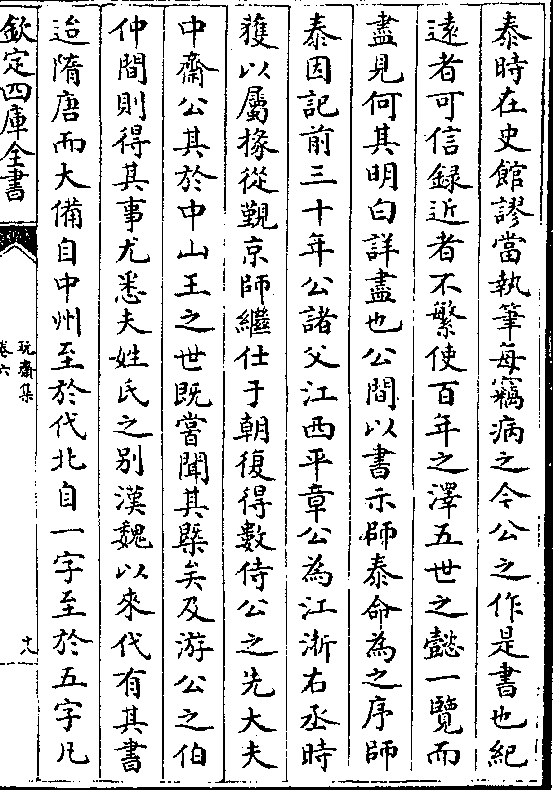 泰時在史館謬當執筆每竊病之今公之作是書也紀
遠者可信録近者不繁使百年之澤五世之懿一覽而
盡見何其明白詳盡也公間以書示師泰命為之序師
泰因記前三十年公諸父江西平章公為江浙右丞時
獲以屬掾從覲京師繼仕于朝復得數侍公之先大夫
中齋公其於中山王之世既嘗聞其槩矣及游公之伯
仲間則得其事尤悉夫姓氏之别漢魏以來代有其書
迨隋唐而大備自中州至於代北自一字至於五字凡
欽定四庫全書
玩齋集
卷六
十九